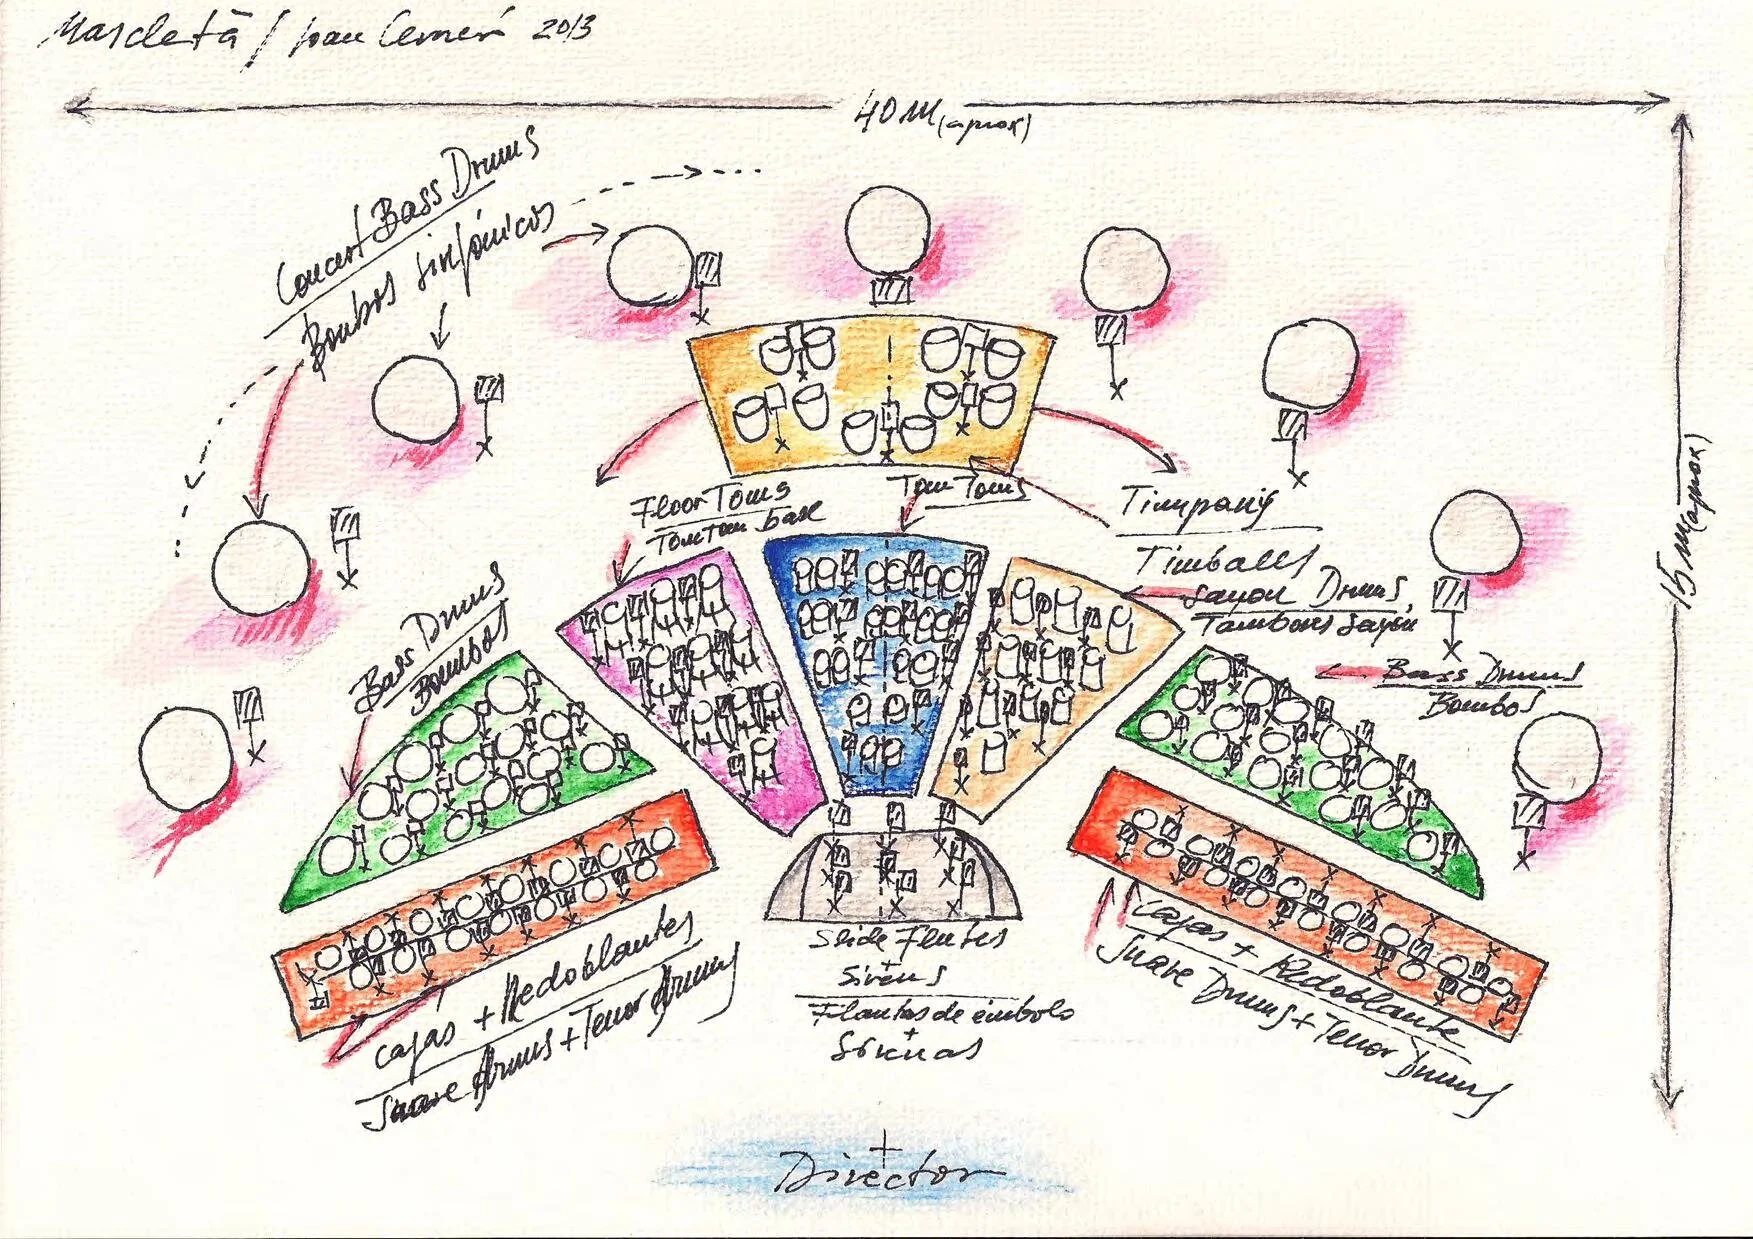 Mascletà / Joan Cerveró 2013
40 m (aprox)
15 m (aprox)
Concert Bass Drums
Bombos sinfónicos
Floor Toms
Tom tom base
Tom Toms
Timpany
Timballs
Sayon Drums,
Tambores Sayon
Bass Drums
Bombos
Bass Drums
Bombos
Cajas + Redoblantes
Snare Drums + Tenor Drums
Slide Flutes
+
Sirens
Flautas de émbolo
+
Sirenas
Cajas + Redoblante
Snare Drums + Tenor Drums
Director